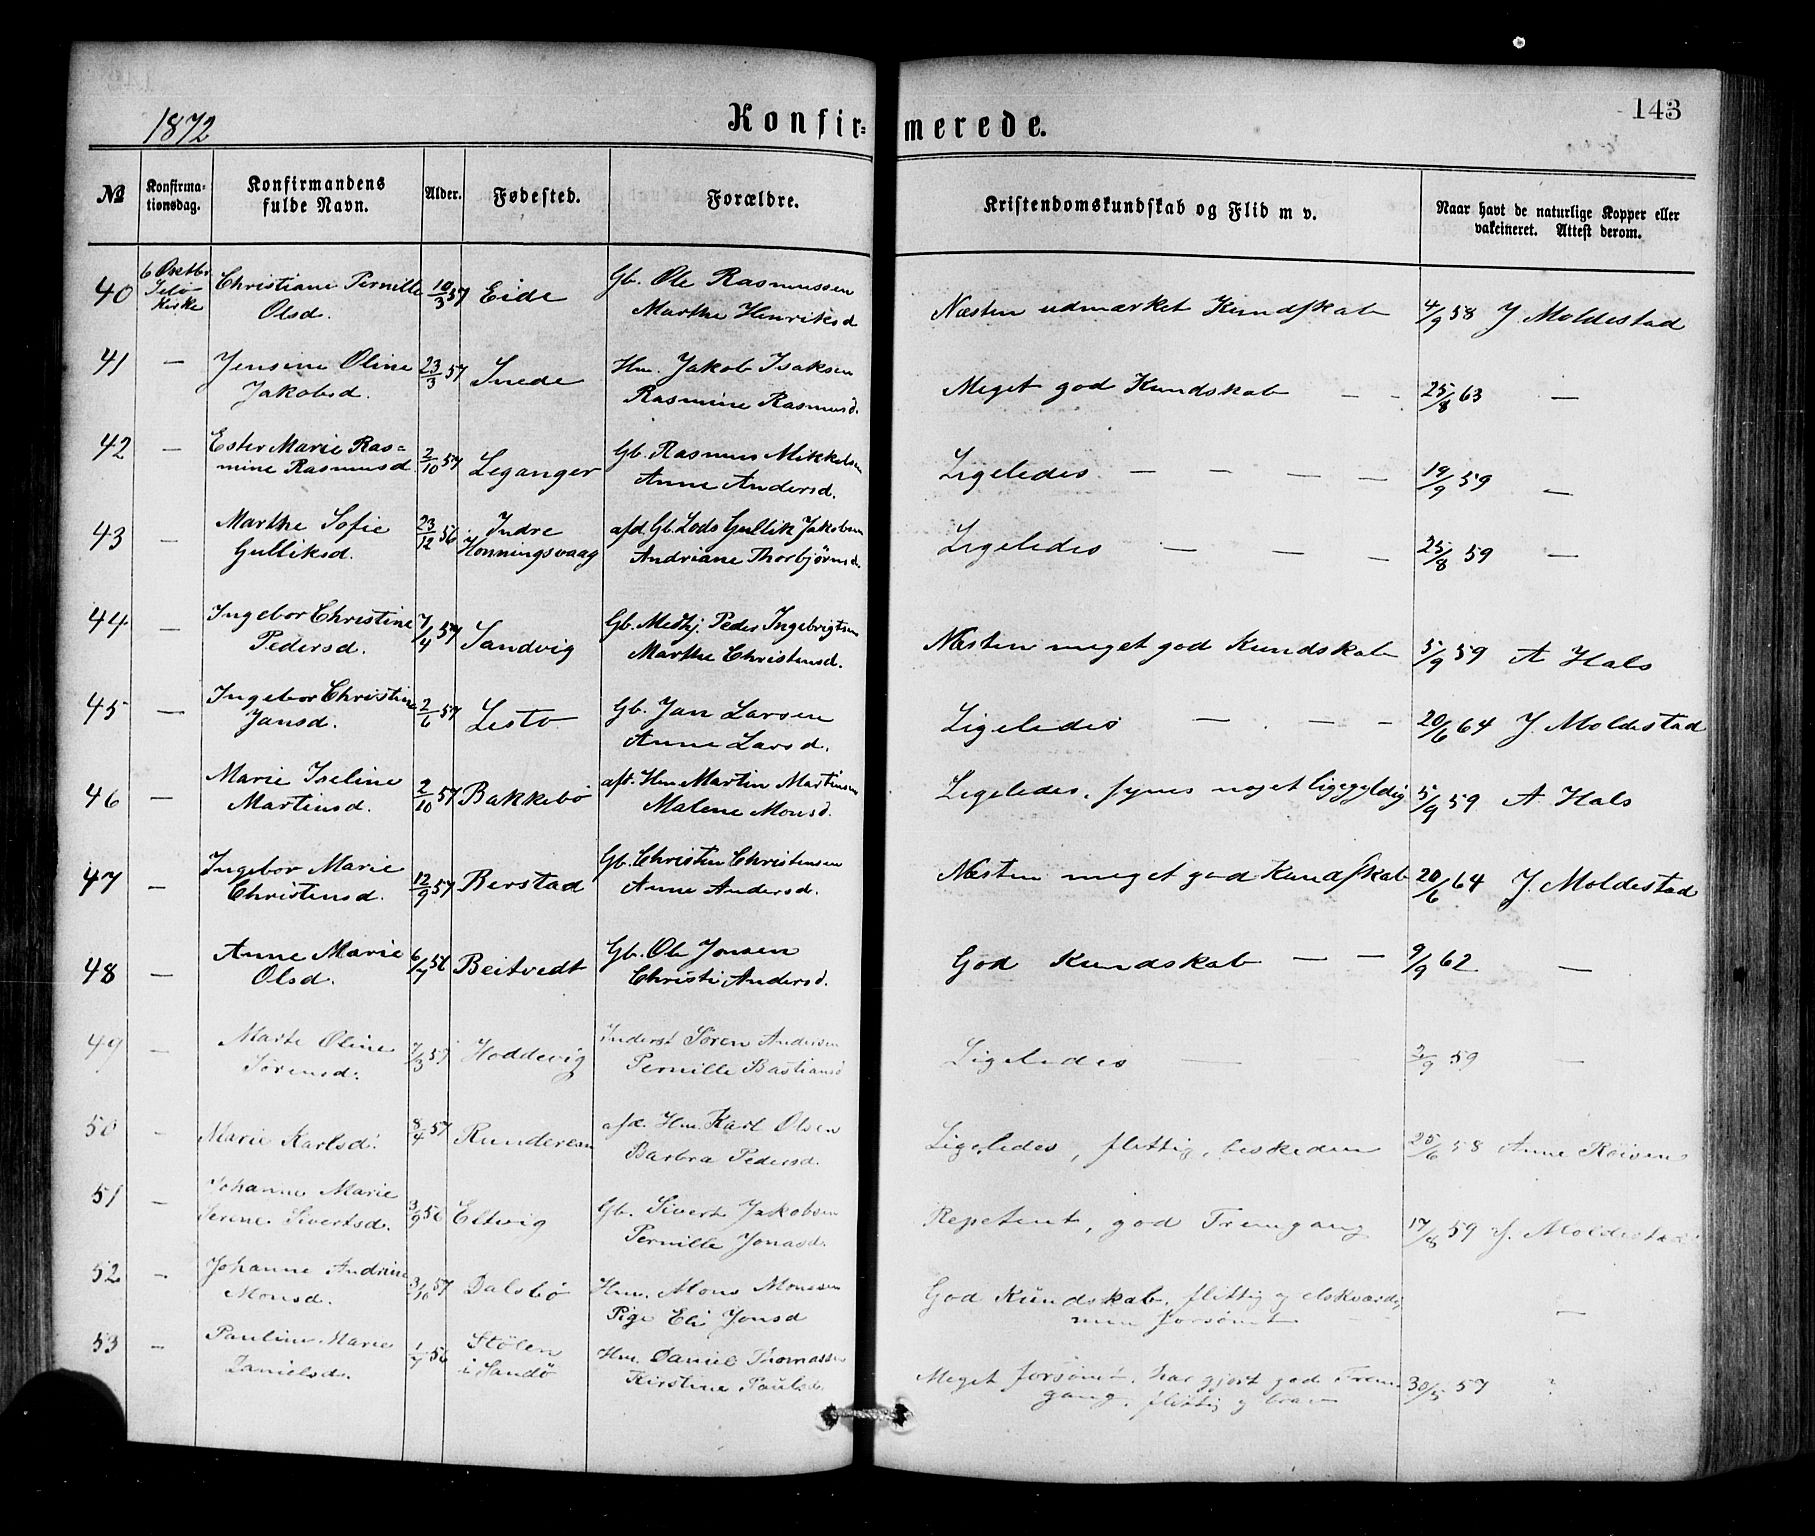 143
1872
Konfirmerede.
№
Konfirmationsdag.
Konfirmandens fulde Navn.
Alder.
Fødested.
Forældre.
Kristendomskundskab og Flid m v.
Naar havt de naturlige Kopper eller vakcineret. Attest derom.
40 6 Octbr Selø Kirke Christiane Pernille 10/3 57 Eide Gb. Ole Rasmussen Næsten udmærket Kundskab 4/9 58 J. Moldestad
Olsd. Marthe Henriksd
41 — Jensine Oline 23/3 57 Inede Hm. Jakob Isaksen Meget god Kundskab — — 25/8 63 —
Jakobsd. Rasmine Rasmusd.
42 — Ester Marie Ras= 2/10 57 Leganger Gb. Rasmus Mikkelsen Ligeledes — — — — 19/9 59 —
mine Rasmusd Anne Andersd.
43 — Marthe Sofie 23/12 56 Indre afd. Gb. Lods Gullik Jakobsen Ligeledes — — — 25/8 59 —
Gulliksd. Honningsvaag Andriane Thorbjørnsd.
44 — Ingebor Christine 7/4 57 Sandvig Gb. Medhj. Peder Ingebrigtsen Næsten meget god Kundskab 5/9 59 A Hals
Pedersd. Marthe Christensd.
45 — Ingebor Christine 2/6 57 Lesto Gb. Jan Larsen Ligeledes — — — 20/6 64 J. Moldestad
Jansd. Anne Larsd.
46 — Marie Iseline 2/10 57 Bakkebø aft. Hm Martin Martinsen Ligeledes, synes noget ligegyldig 5/9 59 A Hals
Martinsd. Malene Monsd.
47 — Ingebor Marie 12/9 57 Berstad Gb. Christen Christensen Næsten meget god Kundskab 20/6 64 J. Moldestad
Christensd. Anne Andersd.
48 — Anne Marie 6/7 56 Beitvedt Gb. Ole Jonsen God Kundskab — — 9/9 62 —
Olsd. Christi Andersd.
49 — Marte Oline 7/3 57 Hoddevig Inderst Søren Andersen Ligeledes — — 2/9 59 —
Sørensd. Pernille Bastiansd
50 — Marie Karlsd. 8/4 57 Rundereim afd. Hm. Karl Olsen Ligeledes, flittig, beskeden 25/6 58 Anne Röisen
Barbra Pedersd.
51 — Johanne Marie 3/9 56 Eltvig Gb. Sivert Jakobsen Repetent, god Fremgang 17/8 59 J. Moldestad
Serene Sivertsd. Pernille Jonasd.
52 — Johanne Andrine 3/10 57 Dalsbø Hm. Mons Monssen God Kundskab, flittig og elskværdig —
Monsd. Pige Eli Jonsd men forsømt
53 — Pauline Marie 1/7 56 Stølen Hm. Daniel Thomassen Meget forsømt, har gjort god Frem- 30/5 57 ?
Danielsd. i Sandø Kirstine Paulsd. gang, flittig og brav